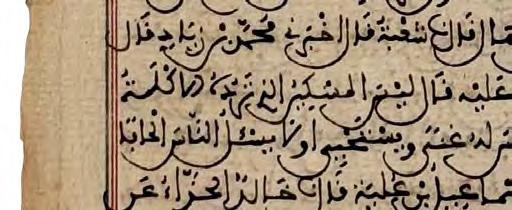 قال شعبة قال اخبرني محمد بن زياد قال
عليه قال ليس المسكين الذي ترده الاكلة
له غنى ويستحيي او لا يسئل الناس الحافا
اسماعيل بن علية قال خالد الحذاء عن